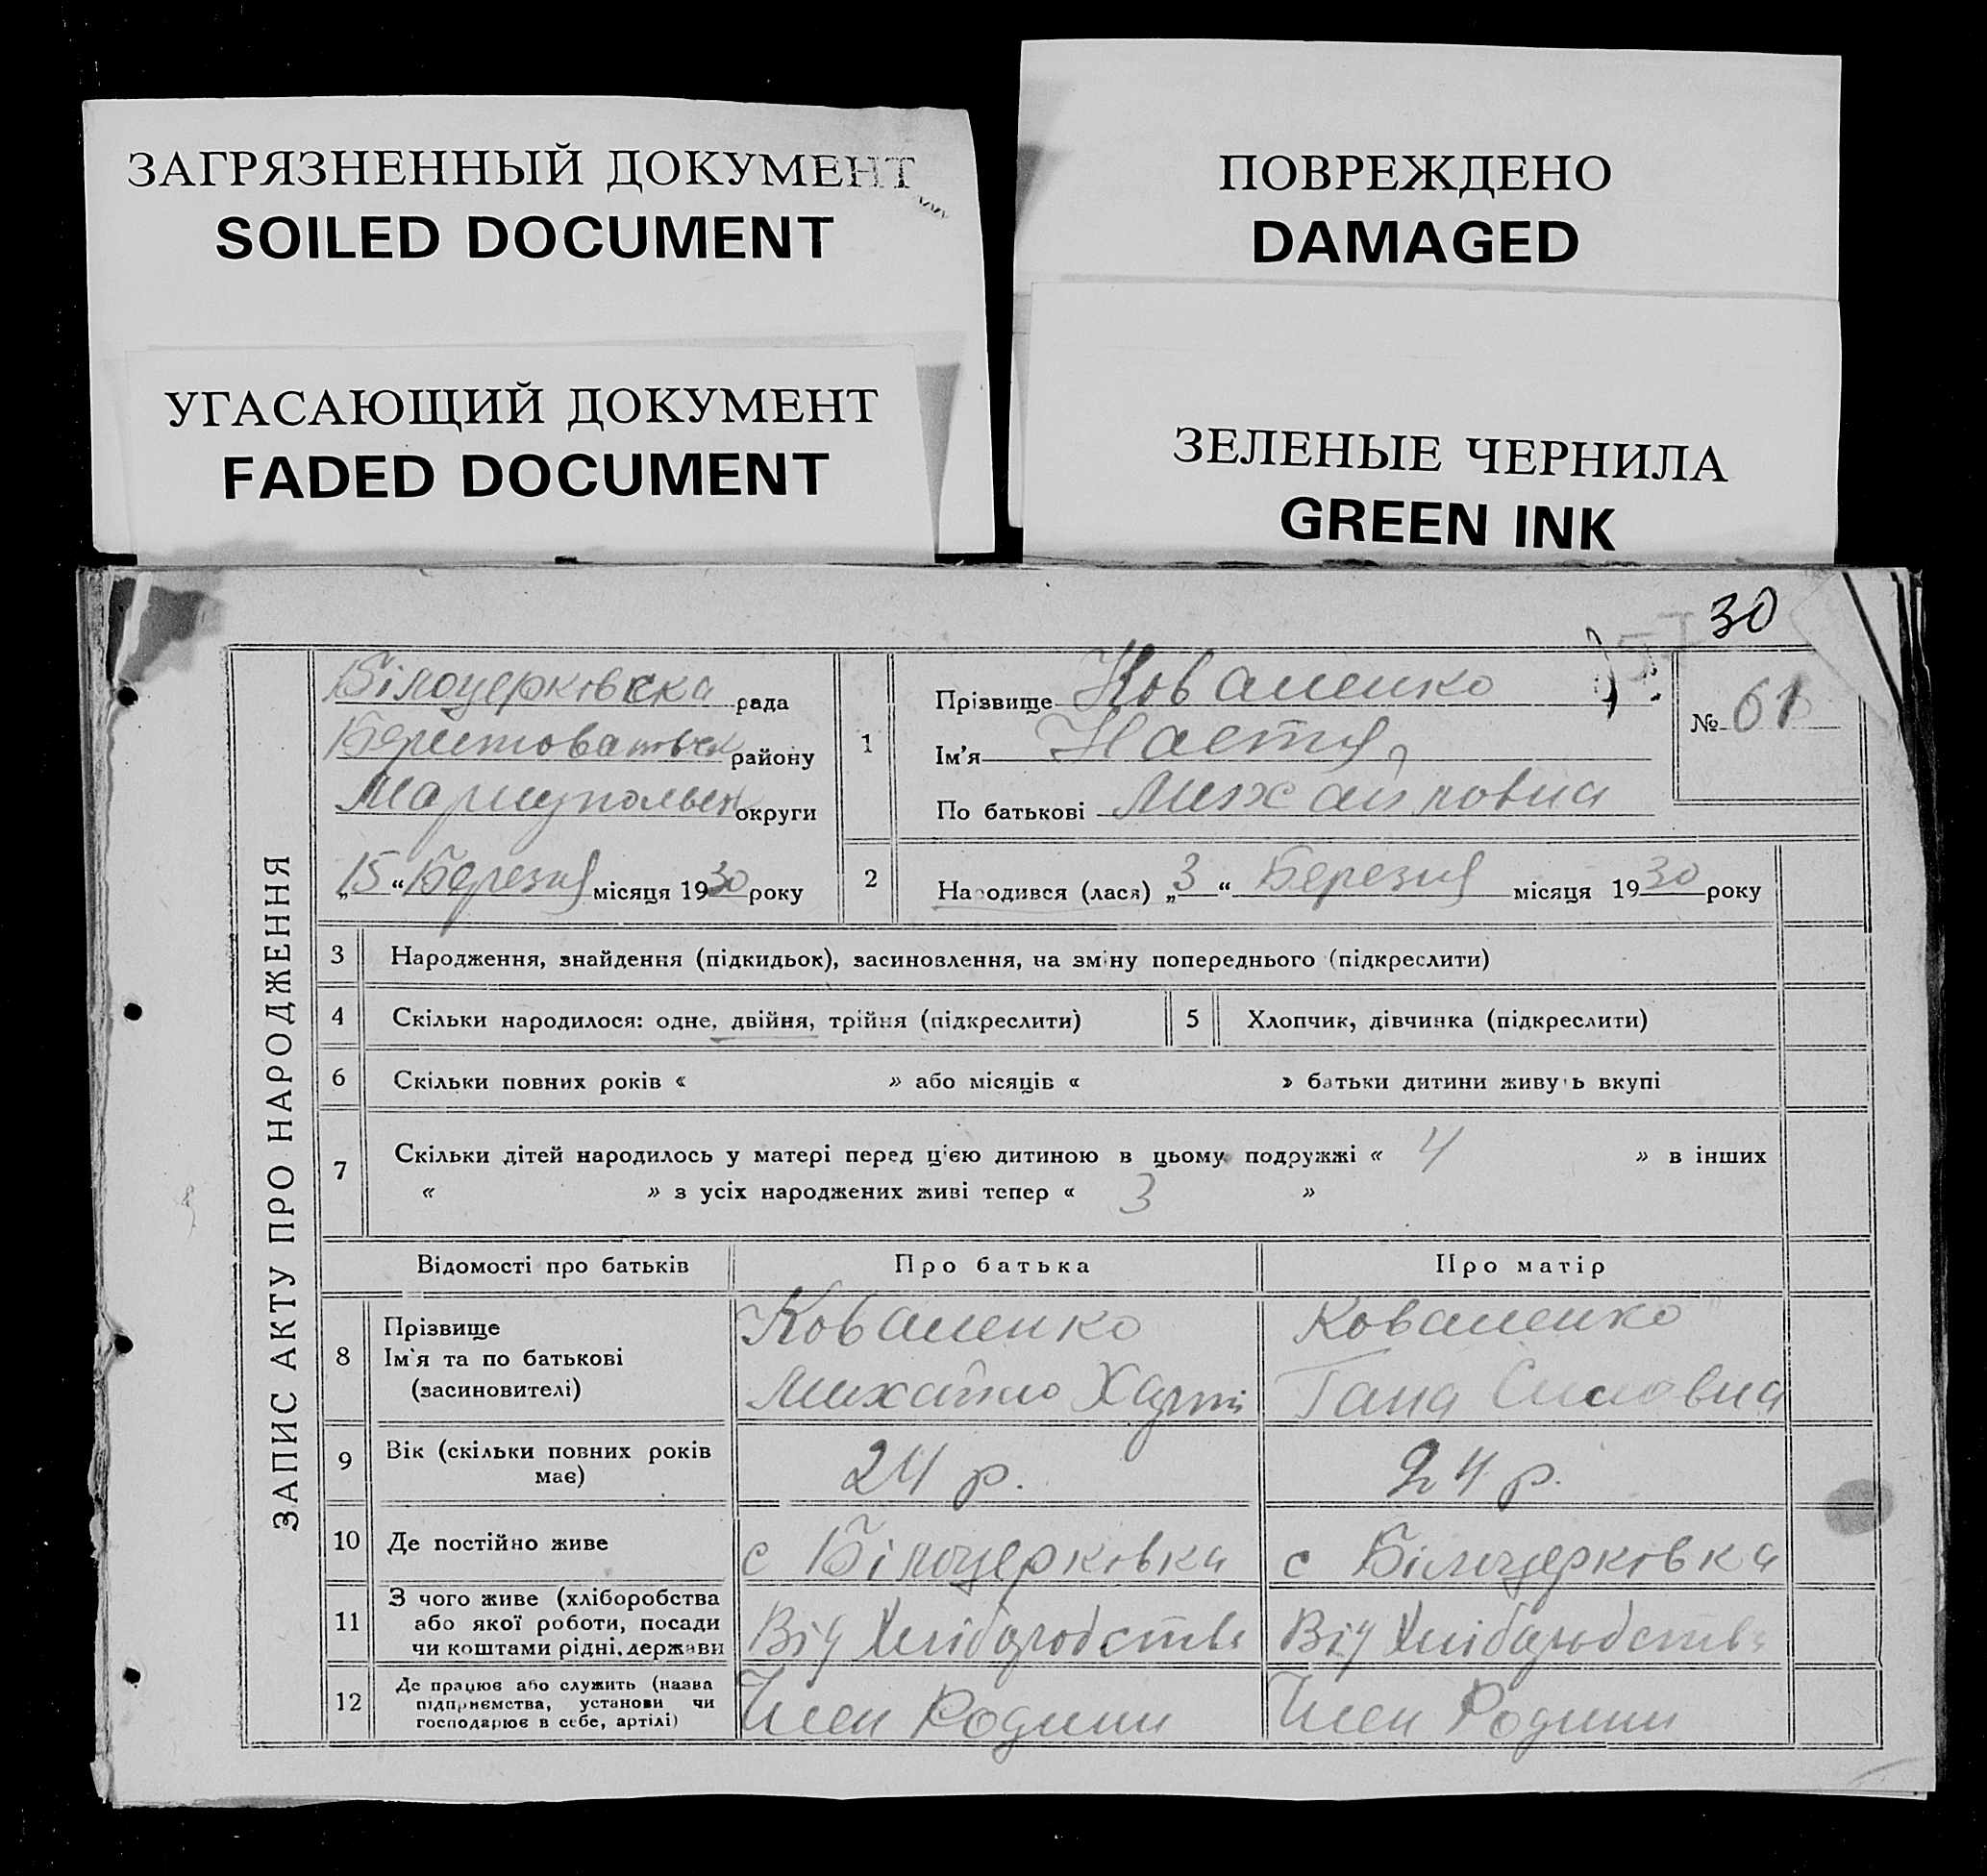 ЗАГРЯЗНЕННЫЙ ДОКУМЕНТ
SOILED DOCUMENT
УГАСАЮЩИЙ ДОКУМЕНТ
FADED DOCUMENT
ПОВРЕЖДЕНО
DAMAGED
ЗЕЛЕНЫЕ ЧЕРНИЛА
GREEN INK
30
ЗАПИС АКТУ ПРО НАРОДЖЕННЯ
Білоцерковска рада
району
округи
„15“ Березня місяця 1930 року
1
Прізвище Коваленко
Ім'я Настя
По батькові Михайловна
№ 61
2 Народився (лася) „3“ Березня місяця 1930 року
3 Народження, знайдення (підкидьок), засиновлення, на зміну попереднього (підкреслити)
4 Скільки народилося: одне, двійня, трійня (підкреслити) 5 Хлопчик, дівчинка (підкреслити)
6 Скільки повних років « » або місяців « » батьки дитини живуть вкупі
7 Скільки дітей народилось у матері перед цією дитиною в цьому подружжі « 4 » в інших
« » з усіх народжених живі тепер « 3 »
Відомості про батьків Про батька Про матір
8 Прізвище Коваленко Коваленко
Ім'я та по батькові
(засиновителі) Михайло Гана
9 Вік (скільки повних років
має) 24 р. 24 р.
10 Де постійно живе с Білоцерковка с Білоцерковка
11 З чого живе (хліборобства
або якої роботи, посади
чи коштами рідні, держави Від Хліборобства Від Хліборобства
12 Де працює або служить (назва
підприємства, установи чи
господарює в себе, артілі) Член Родини Член Родини